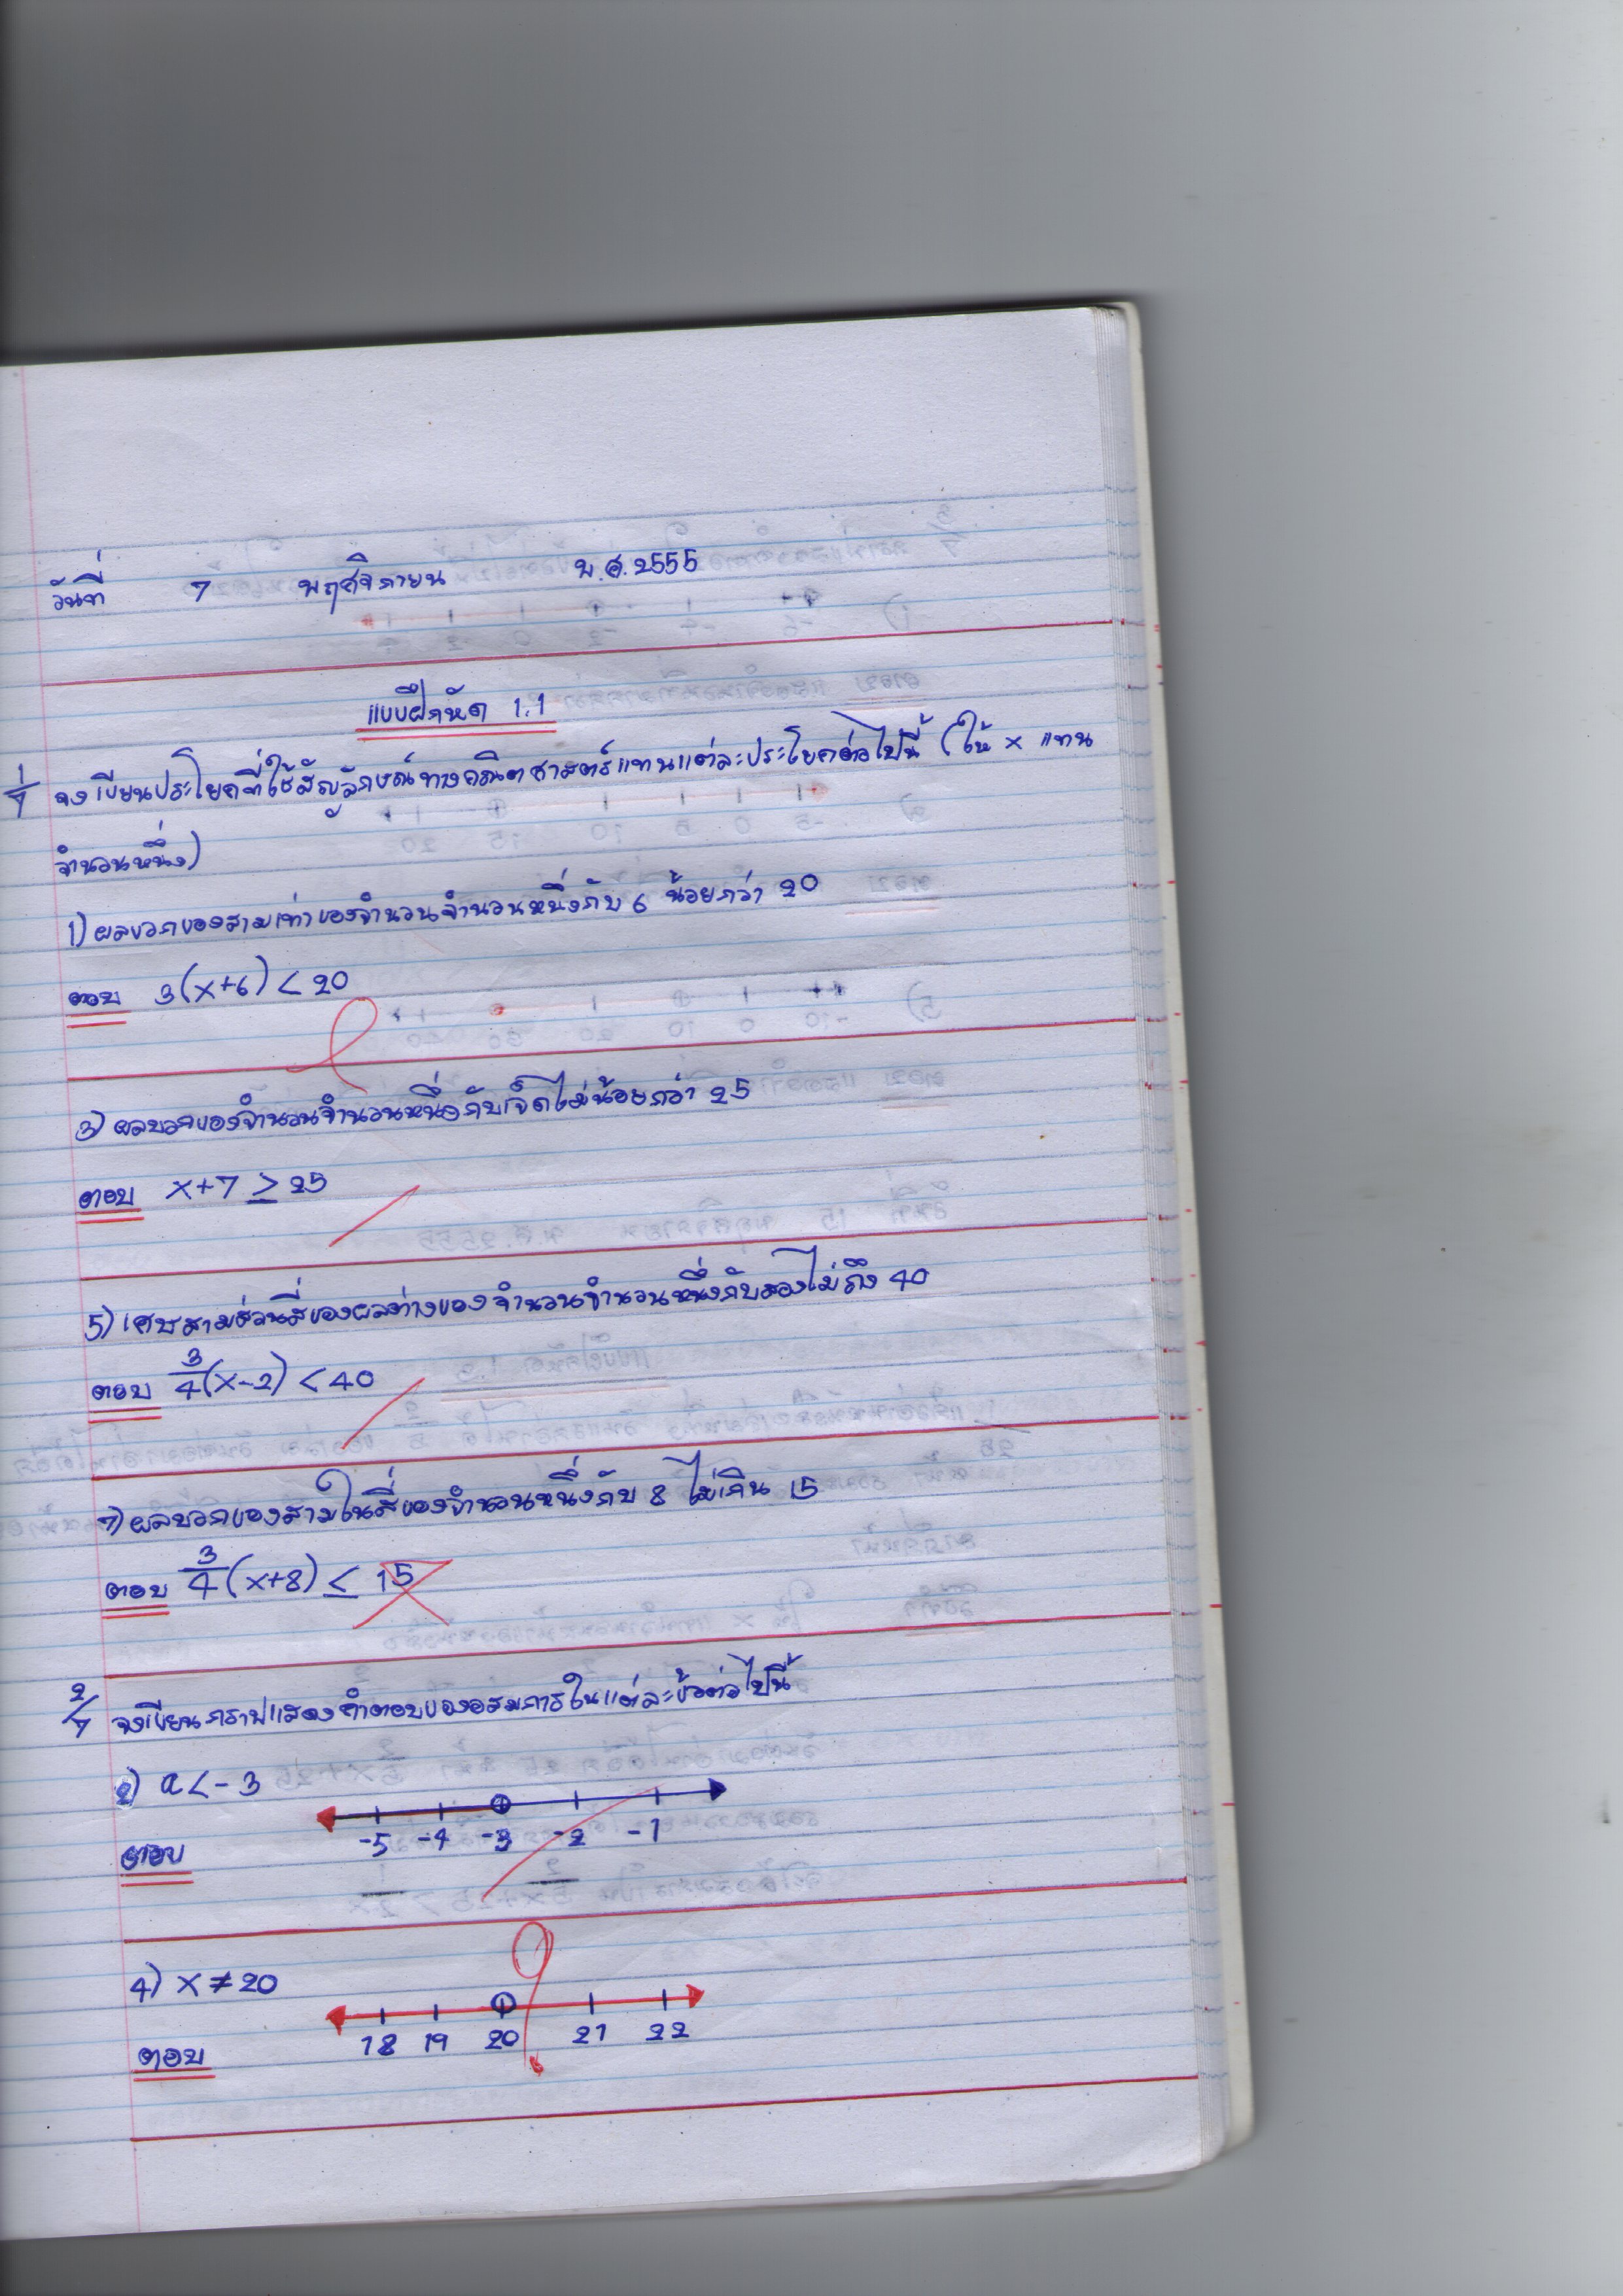 วันที่ 7 พฤศจิกายน พ.ศ.2555
แบบฝึกหัด 1.1
1/7 จงเขียนประโยคที่ใช้สัญลักษณ์ทางคณิตศาสตร์แทนแต่ละประโยคต่อไปนี้ (ให้ x แทน
จำนวนหนึ่ง)
1) ผลบวกของสามเท่าของจำนวนจำนวนหนึ่งกับ 6 น้อยกว่า 20
ตอบ 3(x+6) < 20
3) ผลบวกของจำนวนจำนวนหนึ่งกับเจ็ดไม่น้อยกว่า 25
ตอบ x+7 ≥ 25
5) เศษสามส่วนสี่ของผลต่างของจำนวนจำนวนหนึ่งกับสองไม่ถึง 40
ตอบ 3/4(x-2) < 40
7) ผลบวกของสามในสี่ของจำนวนหนึ่งกับ 8 ไม่เกิน 15
ตอบ 3/4(x+8) ≤ 15
2/7 จงเขียนกราฟแสดงคำตอบของอสมการในแต่ละข้อต่อไปนี้
2) a < -3
-5 -4 -3 -2 -1
ตอบ
4) x ≠ 20
18 19 20 21 22
ตอบ